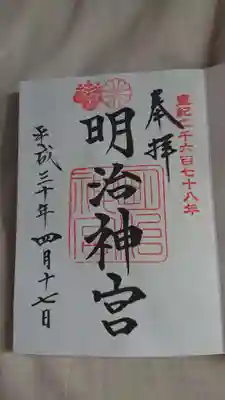 皇紀二千六百七十八年
奉拝
明治神宮
平成三十年四月十七日